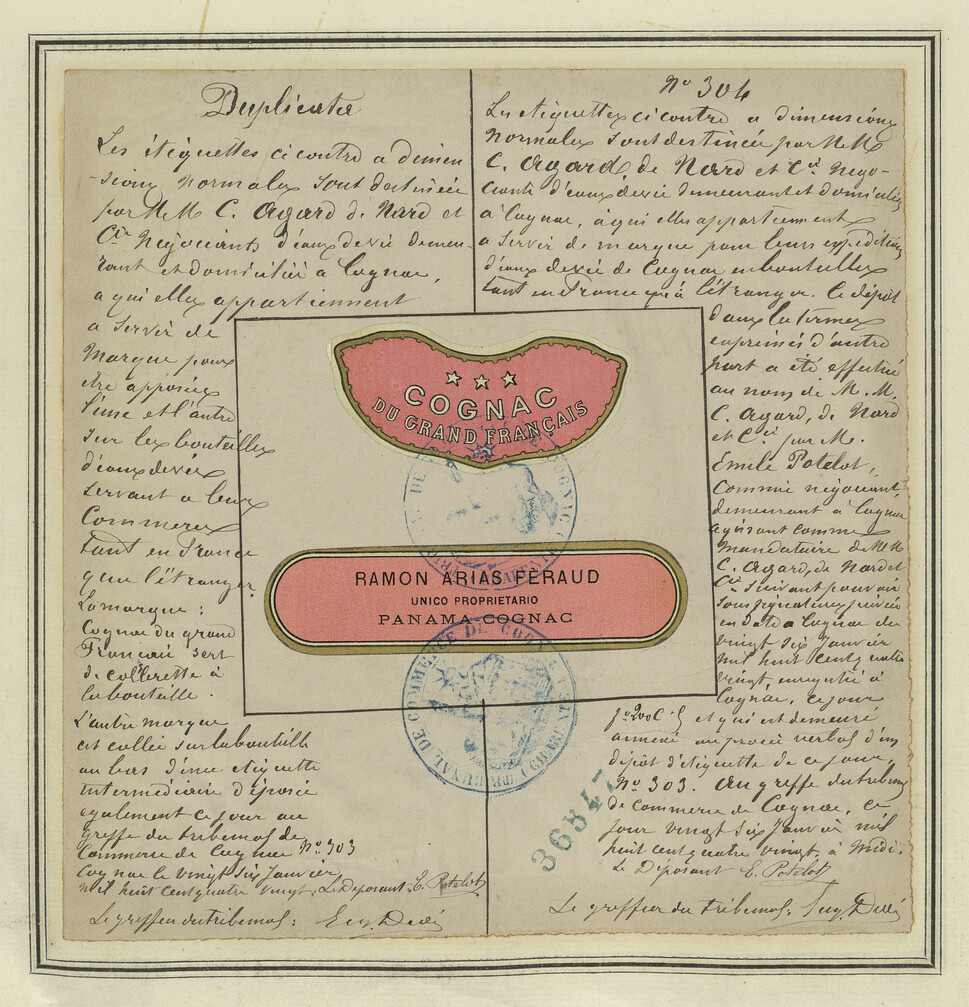 Duplicata
Les étiquettes ci contre a dimen
-sions normales sont destinées
par M M C. Agard de Nard et
Cie Négociants d'eaux de vie demeu-
rant et domiciliés à Cognac,
a qui elles appartiennent
a servir de
Marque pour
être apposées
l'une et l'autre
sur les bouteilles
d'eaux de vie
servant a leur
Commerce
tant en France
que l'étranger
La marque :
Cognac du grand
Français sert
de collerette à
la bouteille .
L'autre marque
est collée sur la bouteille
au bas d'une étiquette
intermédiaire déposée
egalement ce jour au
greffe du tribunal de
Commerce de Cognac No 303
Cognac le vingt six Janvier
mil huit cent quatre vingt. Le Déposant. E. Potelot
Le greffier du tribunal :
No 304
Les étiquettes ci contre a dimensions
normales sont destinées par M M
C. Agard, de Nard et Cie Négo-
ciants d'eaux de vie demeurant et domiciliés
à Cognac, à qui elles appartiennent
a servir de marque pour leurs expéditions
d'eaux de vie de Cognac en bouteilles
tant en France qu'à l'étranger. Ce dépôt
dans les termes
exprimés d'autre
part a été effectué
au nom de M. M.
C. Agard, de Nard
et Cie par M.
Emile Potelot,
Commis négociant
demeurant à Cognac
agissant comme
Mandataire de M M
C. Agard, de Nard et
Cie suivant pouvoir
sous signatures privées
en date a Cognac du
vingt six Janvier
mil huit cent quatre
vingt enregistré à
Cognac, ce jour
et qui est demeuré
annexé au procès verbal d'un
dépôt d'étiquette de ce jour
No 303. Au greffe du tribunal
de Commerce de Cognac, ce
jour vingt six Janvier mil
huit cent quatre vingt, à Midi.
Le Déposant E. Potelot
Le greffier du tribunal :
COGNAC
DU GRAND FRANÇAIS
RAMON ARIAS-FÈRAUD
UNICO PROPRIETARIO
PANAMA-COGNAC
TRIBUNAL DE COMMERCE DE COGNAC
36847